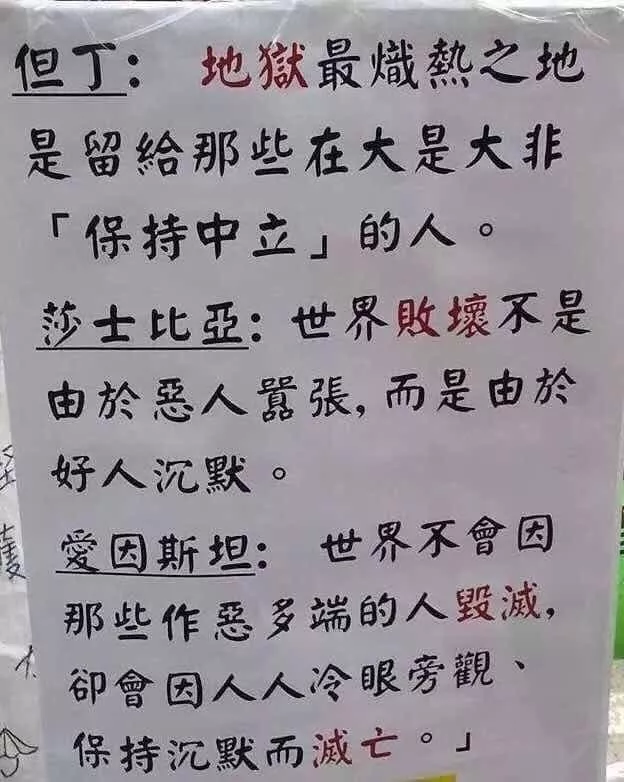 但丁： 地獄最熾熱之地
是留給那些在大是大非
「保持中立」的人。
莎士比亞：世界敗壞不是
由於惡人囂張，而是由於
好人沉默。
愛因斯坦： 世界不會因
那些作惡多端的人毀滅，
卻會因人人冷眼旁觀、
保持沉默而滅亡。」